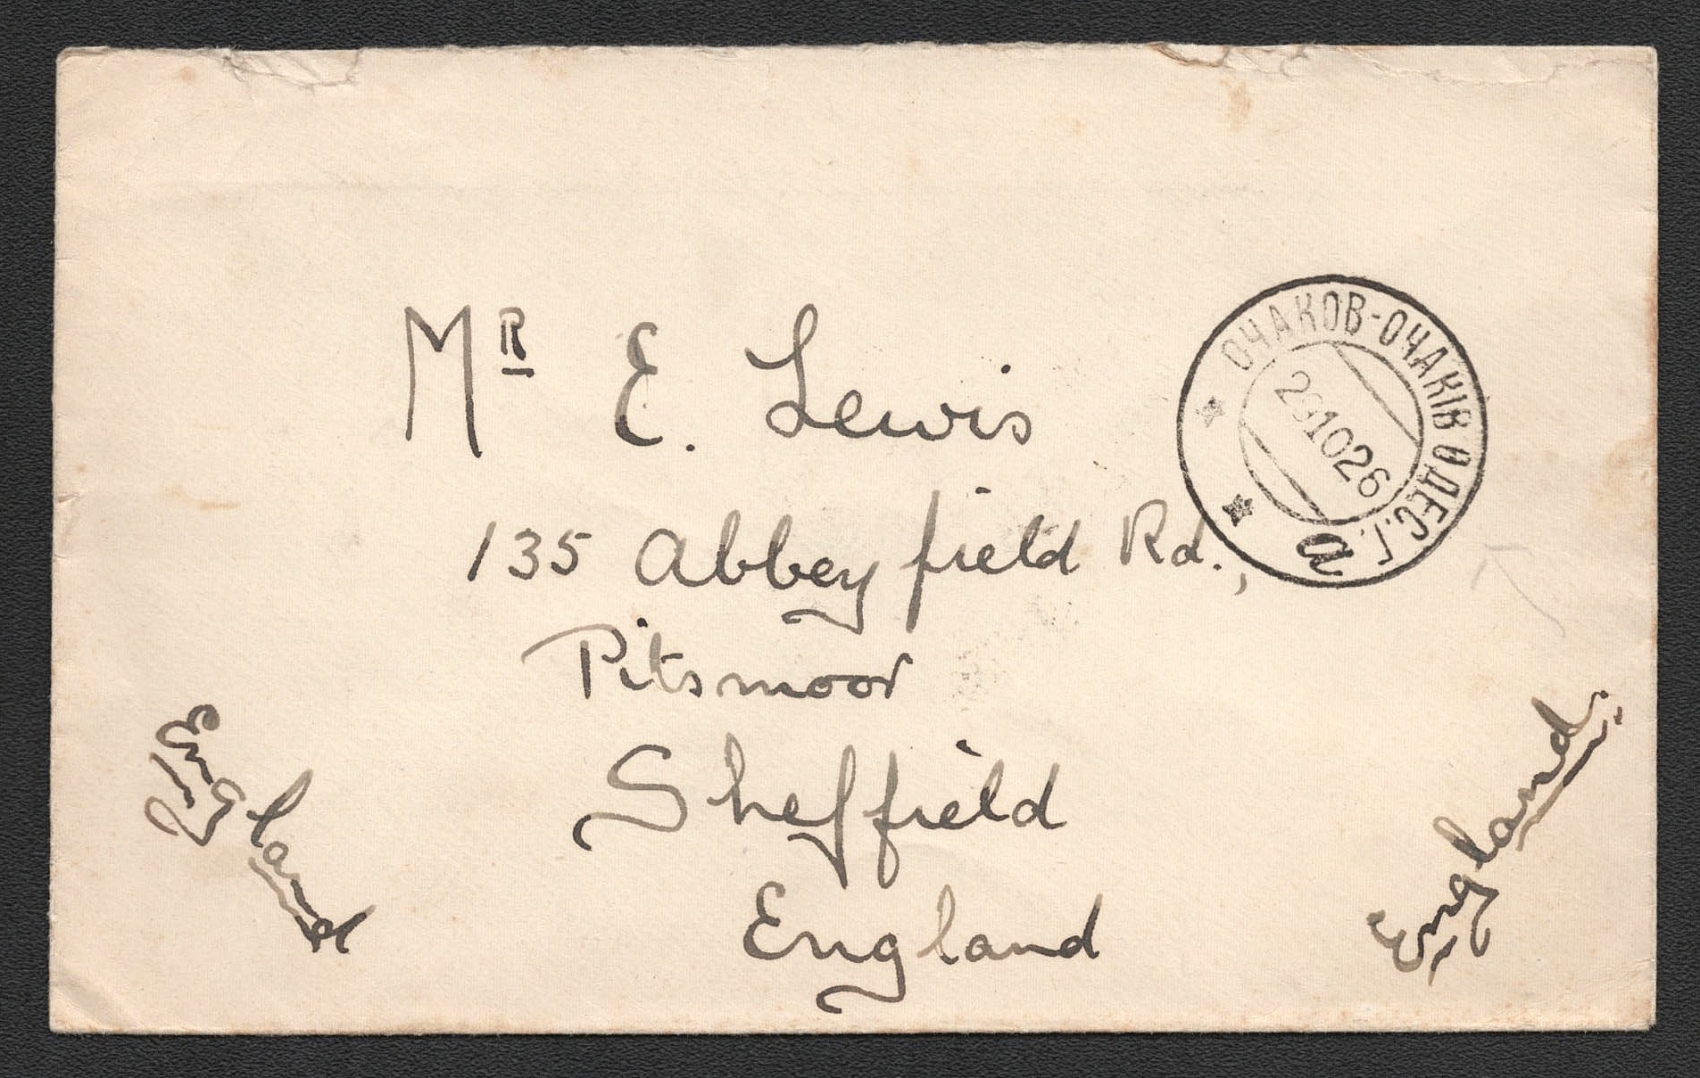 Mr E. Lewis
135 Abbeyfield Rd.,
Pitsmoor
Sheffield
England
England
England.
ОЧАКОВ-ОЧАКІВ ОДЕС.Г.
291026
a